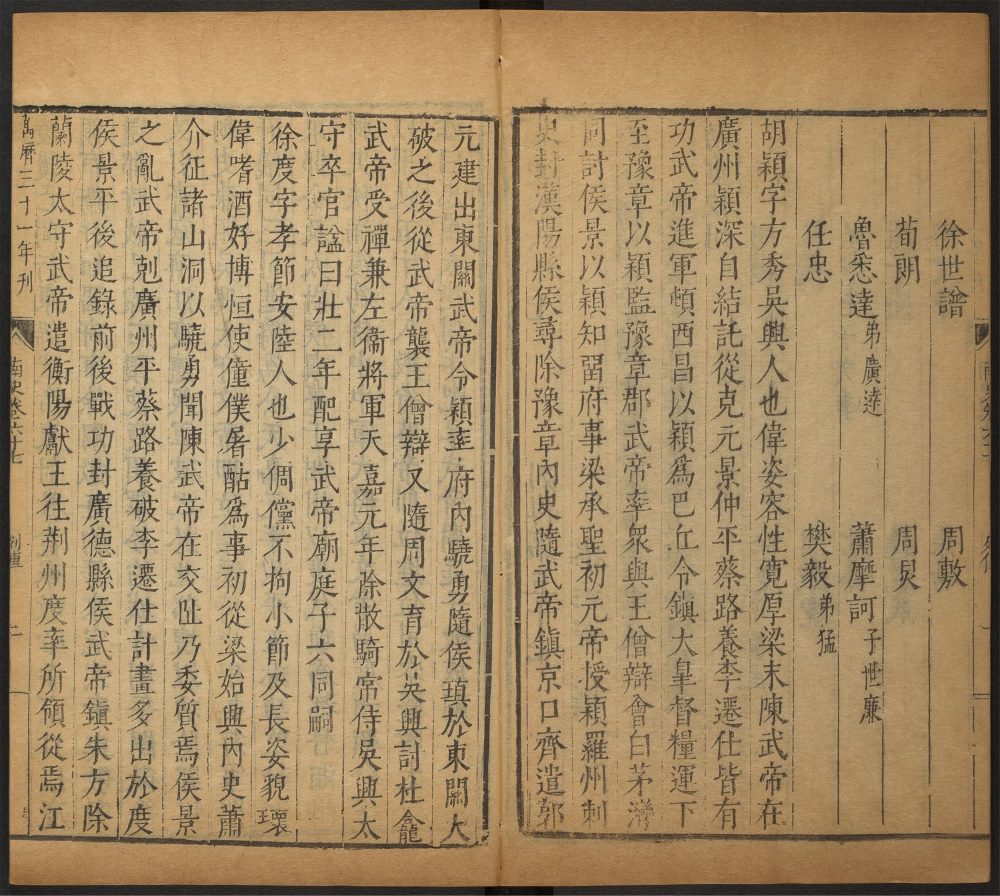 徐世譜 周敷
荀朗 周炅
魯悉達 弟廣達 蕭摩訶 子世廉
任忠 樊毅 弟猛
胡穎字方秀吳興人也偉姿容性寬厚梁末陳武帝在
廣州穎深自結託從克元景仲平蔡路養李遷仕皆有
功武帝進軍頓西昌以穎爲巴丘令鎮大皐督糧運下
至豫章以穎監豫章郡武帝率衆與王僧辯會白茅灣
同討侯景以穎知留府事梁承聖初元帝授穎羅州刺
史封漢陽縣侯尋除豫章內史隨武帝鎮京口齊遣郭
元建出東關武帝令穎率府內驍勇隨侯瑱於東關大
破之後從武帝襲王僧辯又隨周文育於吳興討杜龕
武帝受禪兼左衞將軍天嘉元年除散騎常侍吳興太
守卒官謚曰壯二年配享武帝廟庭子六同嗣
徐度字孝節安陸人也少倜儻不拘小節及長姿貌瓌
偉嗜酒好博恒使僮僕屠酤爲事初從梁始興內史蕭
介征諸山洞以驍勇聞陳武帝在交阯乃委質焉侯景
之亂武帝剋廣州平蔡路養破李遷仕計畫多出於度
侯景平後追錄前後戰功封廣德縣侯武帝鎮朱方除
蘭陵太守武帝遣衡陽獻王往荆州度率所領從焉江
萬曆三十一年刊 南史卷六十七 列傳 二